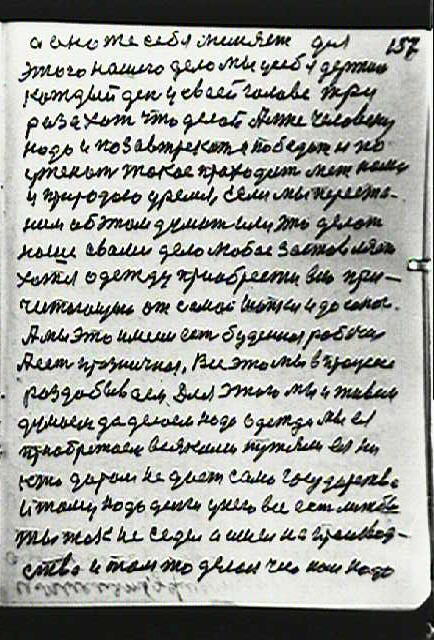 а оно же себя меняет для 157
этого нашего дело мы у себя держим
каждый ден у своей голове три
раза хот что делай Анже человеку
надо и позавтрекат и победат и по
ужекат такое приходит мет нашу
и природою время, если мы переста-
ним об этом думат или это делат
наше своим дело любое заставлят
хотя одежду приобрести всю при-
читающию от самой шапки и до сапог.
Амы это имеем ест буденая рабочая
Аест празничная, Все это мы в процессе
раздобываем Для этого мы и живем
думаем да делаем надо одежда мы ея
приобретаем всякими путями ея ни
кто даром не дает само государство
итому надо денги у него все ест лиж бы
ты так не седел а шел на производ-
ство и там то делал что нам надо